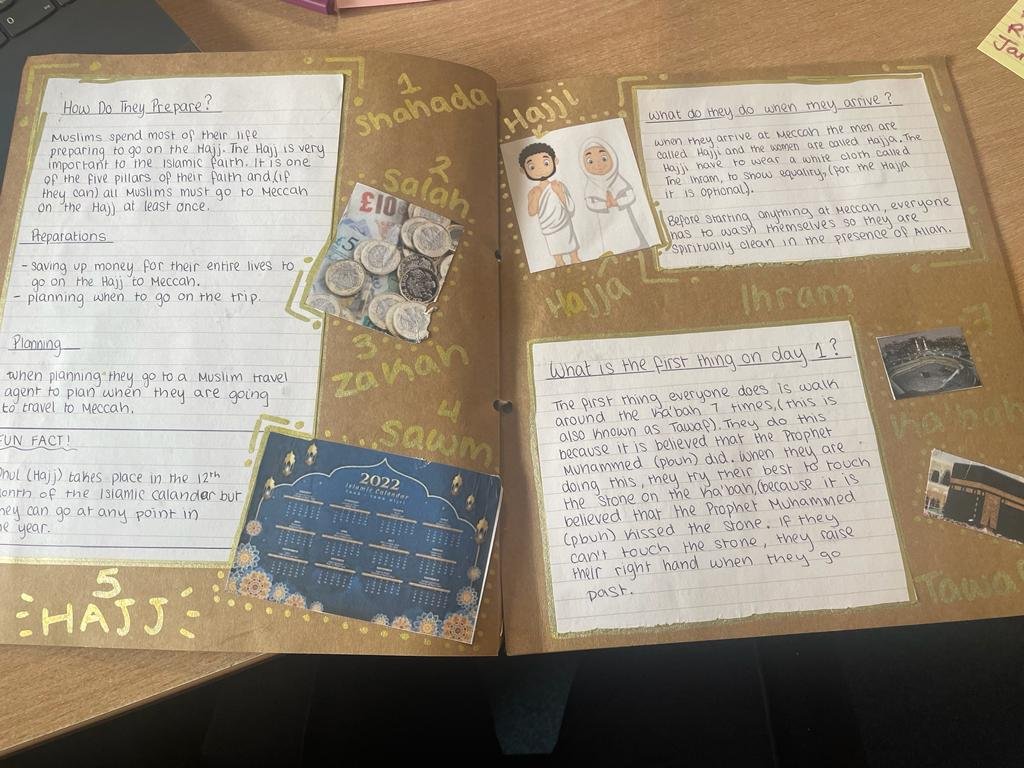 How Do They Prepare?
Muslims spend most of their life
preparing to go on the Hajj. The Hajj is very
important to the Islamic faith. It is one
of the five pillars of their faith and (if
they can) all Muslims must go to Meccah
on the Hajj at least once.
Preparations
- saving up money for their entire lives to
go on the Hajj to Meccah.
- planning when to go on the trip.
Planning
when planning they go to a Muslim travel
agent to plan when they are going
to travel to Meccah.
FUN FACT!
(Hajj) takes place in the 12th
of the Islamic calandar but
they can go at any point in
year.
1
Shahada
2
Salah
£10
£5
3
Zakah
4
Sawm
2022
Islamic Calendar
5
HAJJ
Hajji
Hajja
Ihram
What do they do when they arrive?
when they arrive at Meccah the men are
called Hajji and the women are called Hajja. The
Hajji have to wear a white cloth called
The Ihram, to show equality, (for the Hajja
it is optional).
Before starting anything at Meccah, everyone
has to wash themselves so they are
spiritually clean in the presence of Allah.
What is the first thing on day 1?
The first thing everyone does is walk
around the Ka'bah 7 times, (this is
also known as Tawaf). They do this
because it is believed that the Prophet
Muhammed (pbuh) did. When they are
doing this, they try their best to touch
the stone on the Ka'bah, (because it is
believed that the Prophet Muhammed
(pbuh) kissed the stone. If they
can't touch the stone, they raise
their right hand when they go
past.
7
Ka'bah
Tawaf